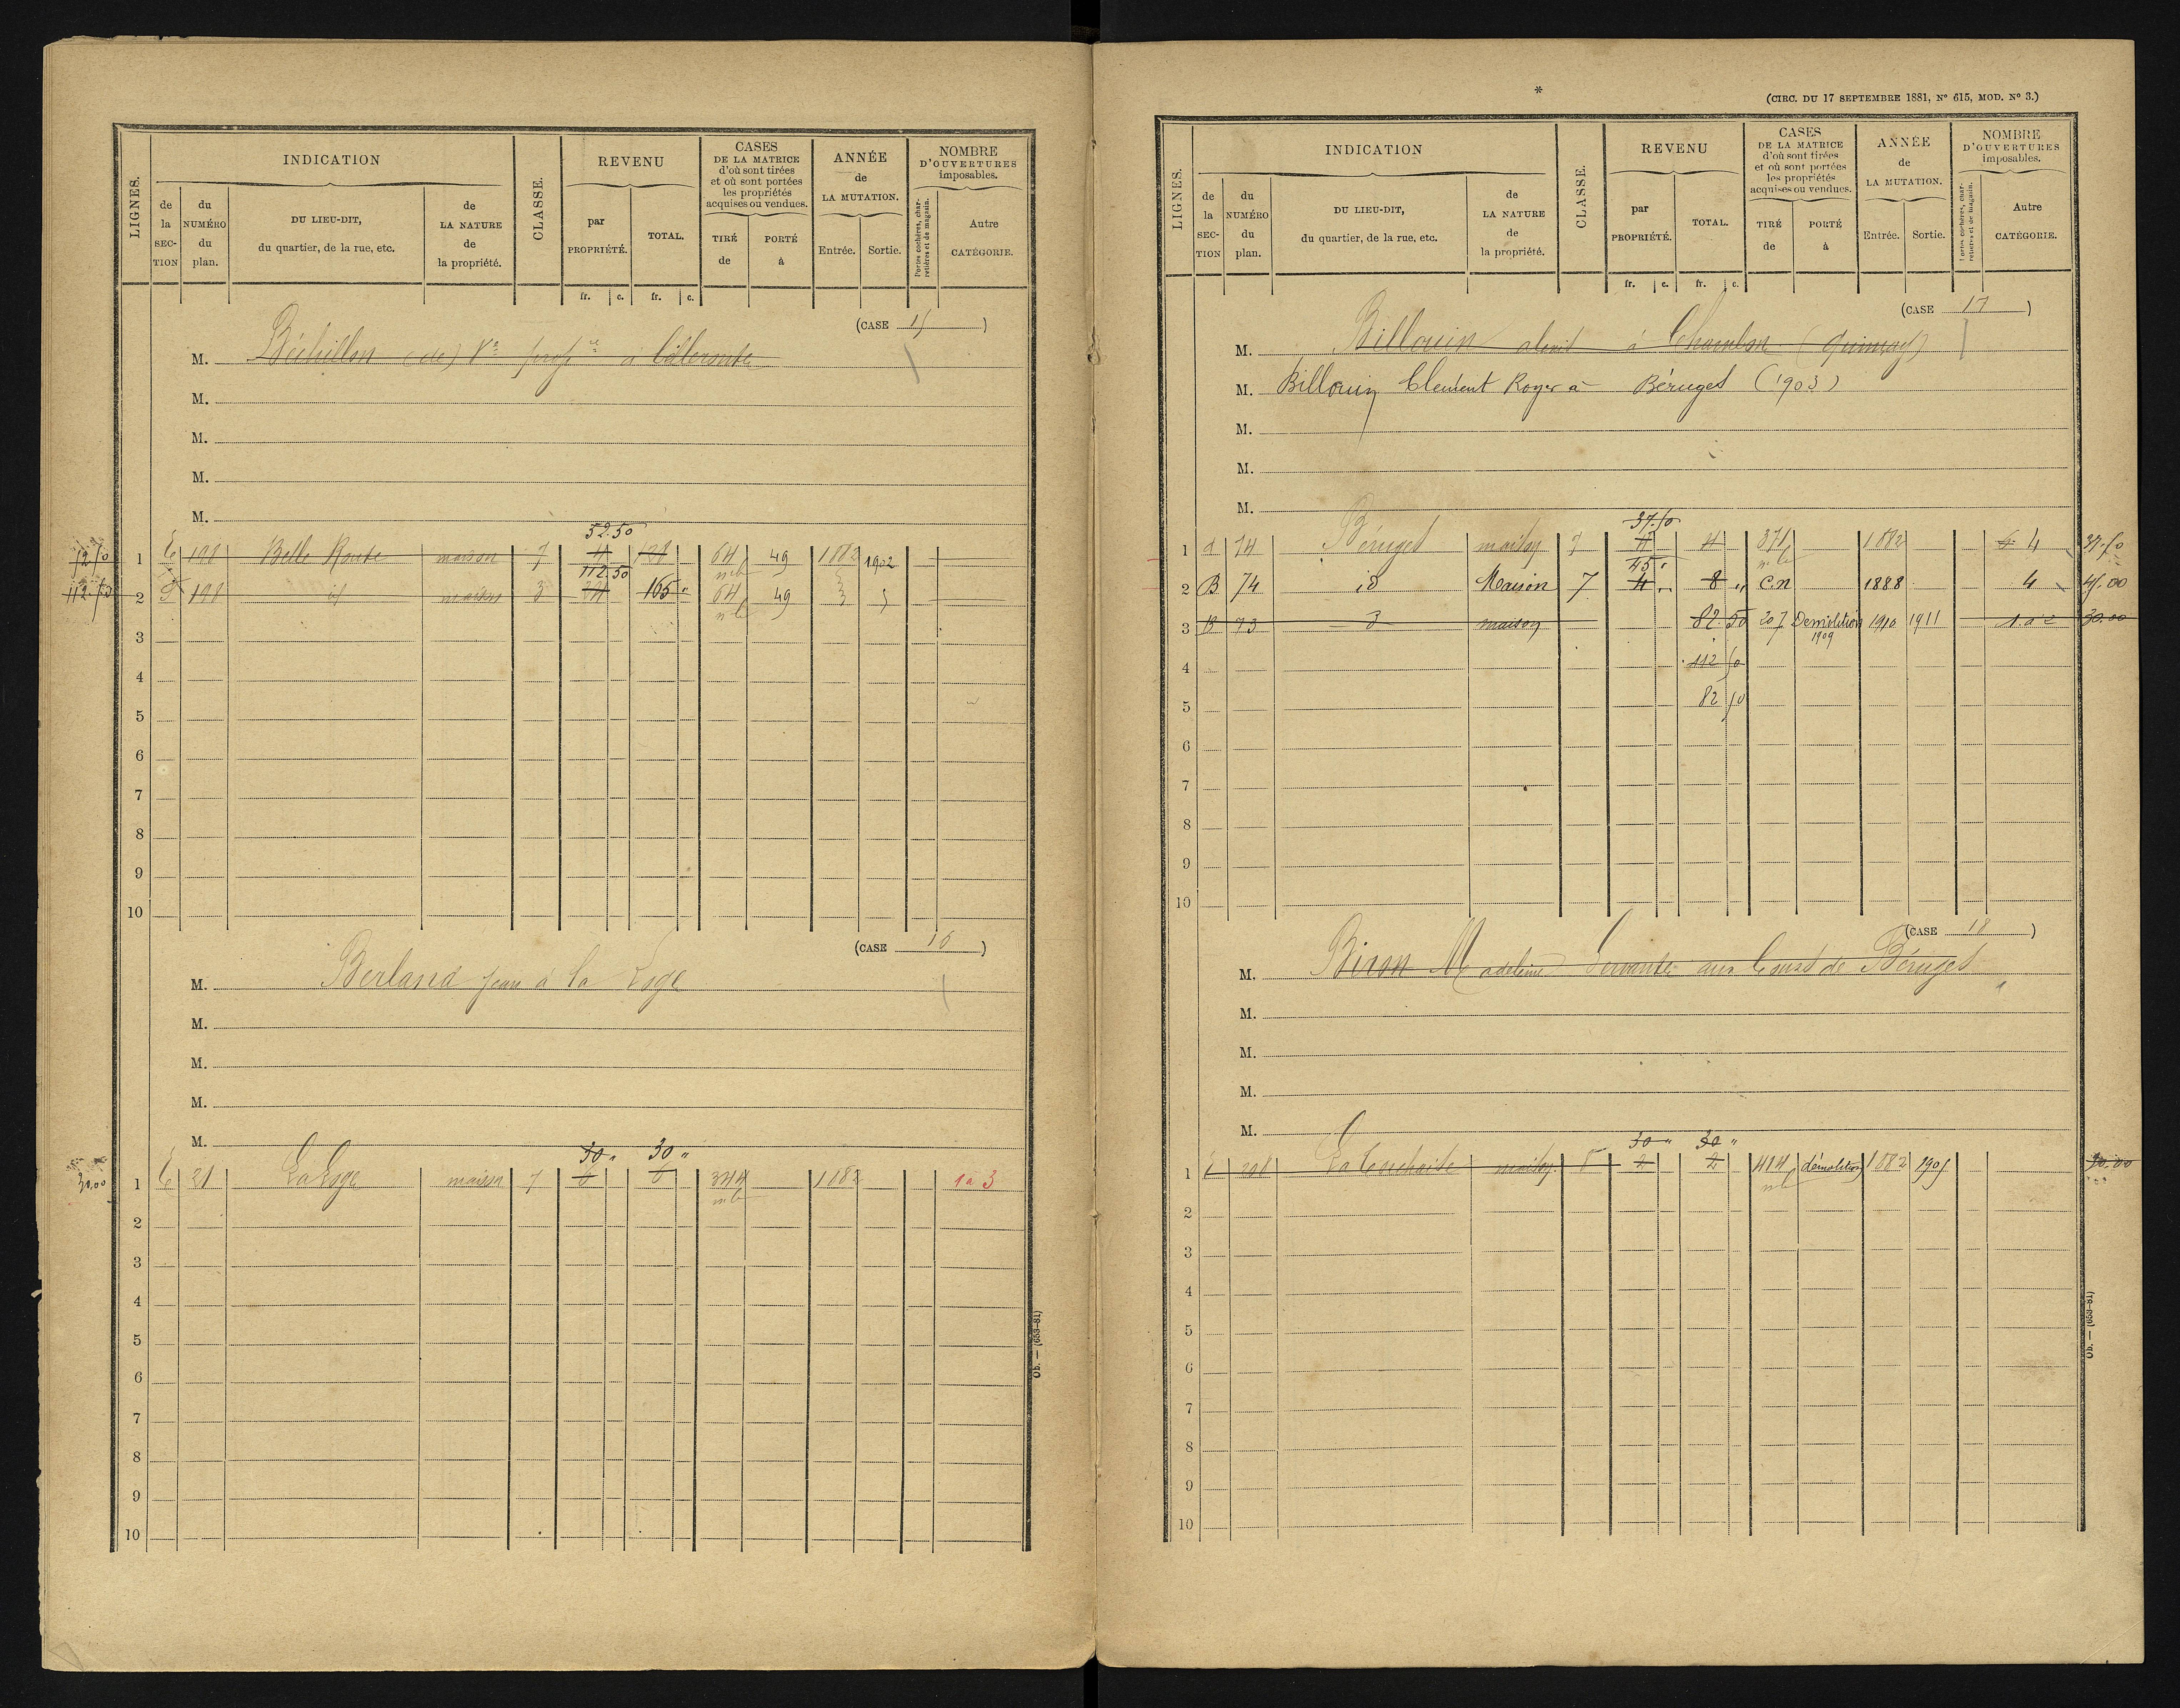 LIGNES.
INDICATION
de la SECTION
du NUMÉRO du plan.
DU LIEU-DIT, du quartier, de la rue, etc.
de LA NATURE de la propriété.
CLASSE.
REVENU
par PROPRIÉTÉ.
TOTAL.
CASES DE LA MATRICE d'où sont tirées et où sont portées les propriétés acquises ou vendues.
TIRÉ de
PORTÉ à
ANNÉE de LA MUTATION.
Entrée.
Sortie.
NOMBRE D'OUVERTURES imposables.
Portes cochères, charretières et de magasin.
Autre CATÉGORIE.
fr. c. fr. c.
(CASE 15)
M. Béchillon (de) Vve à
M.
M.
M.
M.
52.50
1 E 198 Belle Route maison 7 4 64 49 1882 1902
112.50
112.50 2 198 id maison 3 165 " 64 49
3
4
5
6
7
8
9
10
(CASE 16)
M. Berland Jean à la Loge
M.
M.
M.
M.
30 " 30 "
30.00 1 E 21 La Loge maison 7 6 6 344 1882 1 à 3
2
3
4
5
6
7
8
9
10
Ob. — (653-81)
*
(CIRC. DU 17 SEPTEMBRE 1881, No 615, MOD. No 3.)
LIGNES.
INDICATION
de la SECTION
du NUMÉRO du plan.
DU LIEU-DIT, du quartier, de la rue, etc.
de LA NATURE de la propriété.
CLASSE.
REVENU
par PROPRIÉTÉ.
TOTAL.
CASES DE LA MATRICE d'où sont tirées et où sont portées les propriétés acquises ou vendues.
TIRÉ de
PORTÉ à
ANNÉE de LA MUTATION.
Entrée.
Sortie.
NOMBRE D'OUVERTURES imposables.
Portes cochères, charretières et de magasin.
Autre CATÉGORIE.
fr. c. fr. c.
(CASE 17)
M. Billouin alexis à Chambon (Quinçay)
M. Billouin Clément Roger à Béruges (1903)
M.
M.
M.
37.50
1 74 Béruges maison 7 4 4 371 1882 4 37.50
45 "
2 B 74 id Maison 7 4 " 8 " C.n 1888 4 45.00
3 B 73 maison 82 50 207 Démolition 1909 1910 1911 30.00
4 112 50
5 82 50
6
7
8
9
10
(CASE 18)
M. Biron Madeleine Servante aux Cours de Béruges
M.
M.
M.
M.
30 " 30 "
1 208 maison 8 2 2 414 démolition 1882 1905 30.00
2
3
4
5
6
7
8
9
10
Ob. — (653-81)